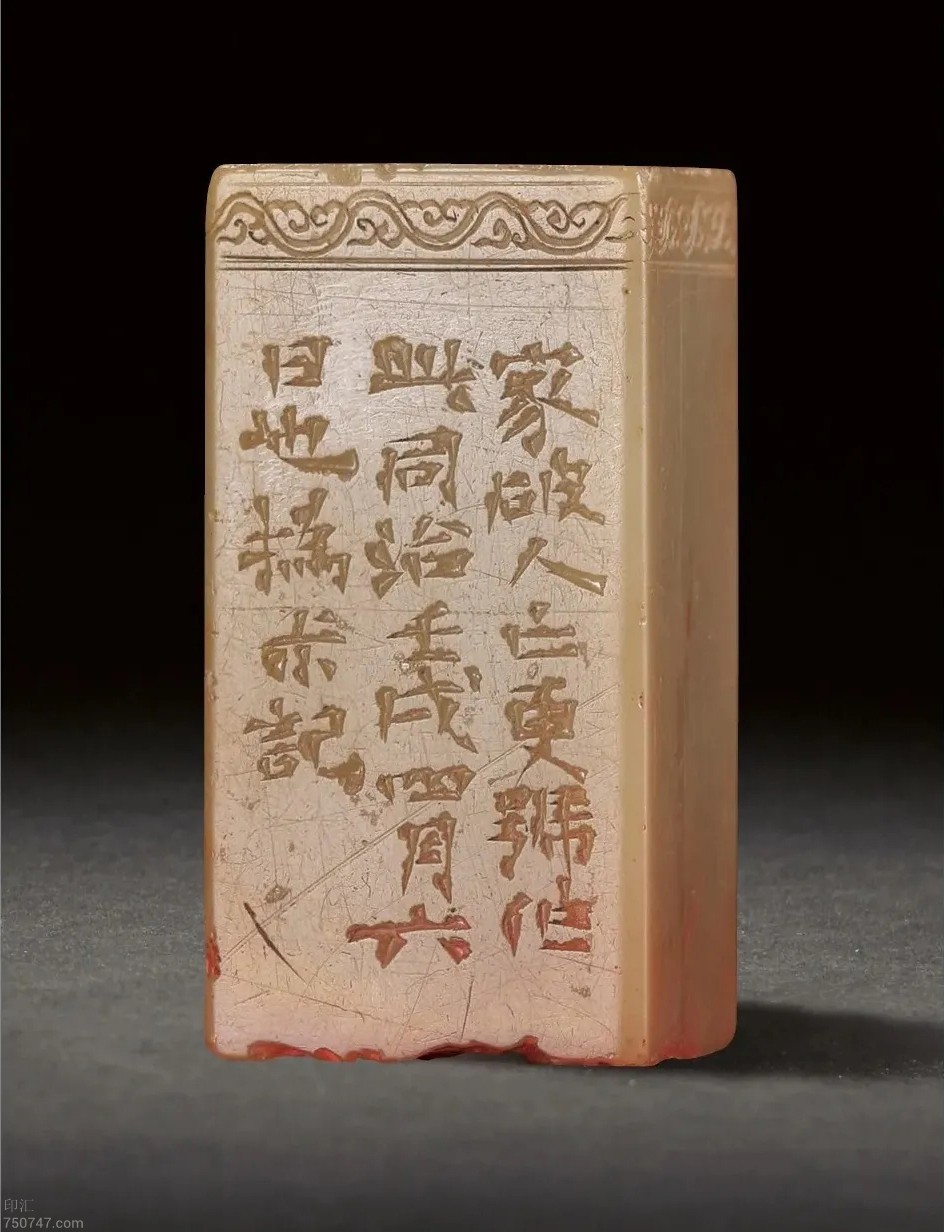 家破人亡更號作
此同治壬戌四月六
日也撝尗記
印汇
750747.com